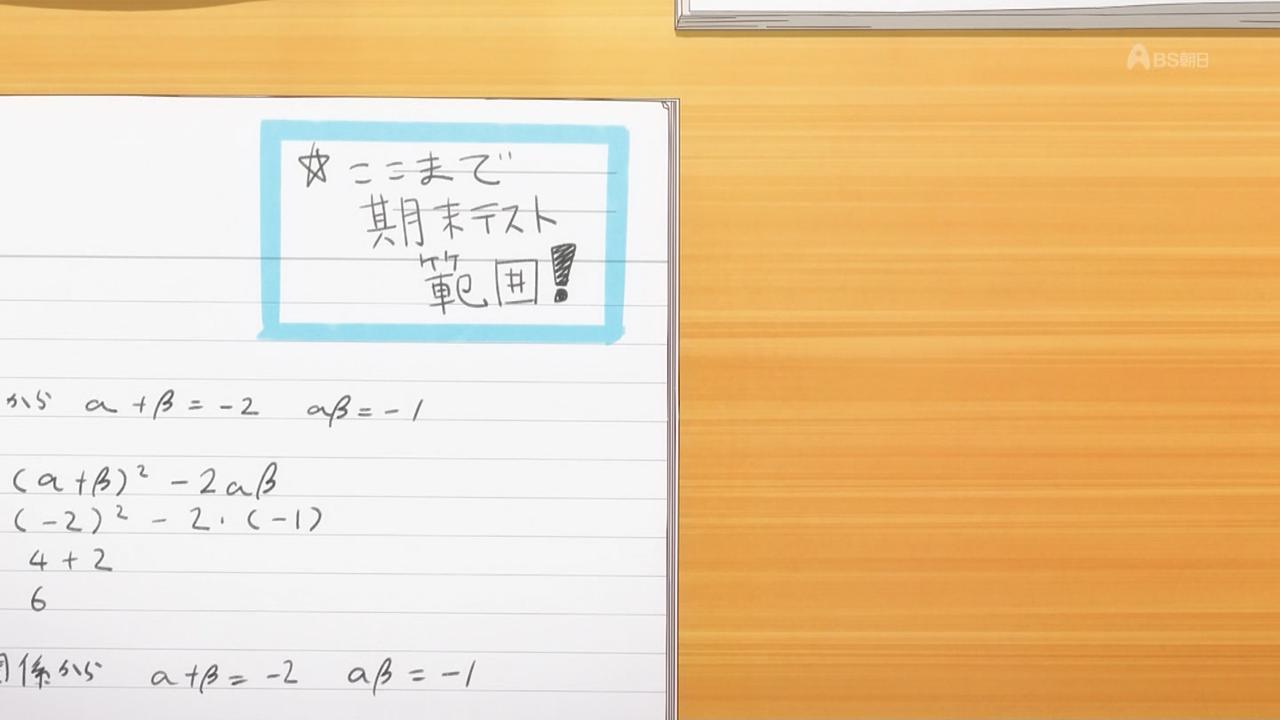 BS朝日
☆ここまで
期末テスト
範囲!
から α+β=-2 αβ=-1
(α+β)² -2αβ
(-2)² - 2・(-1)
4+2
6
係から α+β=-2 αβ=-1